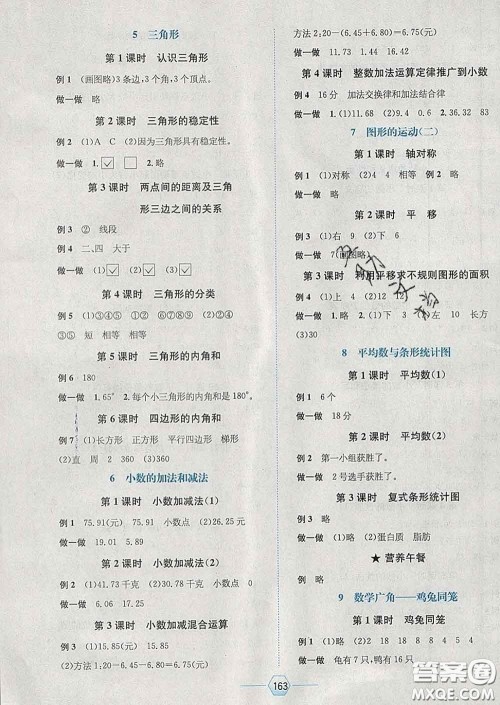 5 三角形
第1课时 认识三角形
例1 (画图略)3条边,3个角,3个顶点。
做一做 略
第2课时 三角形的稳定性
例2 (1)A C (2)因为三角形具有稳定性。
做一做 1.☑ □ 2.略
第3课时 两点间的距离及三角
形三边之间的关系
例3 ② 线段
例4 二、四 大于
做一做 1.☑ ☑ ☑
第4课时 三角形的分类
做一做 略
第5课时 三角形的内角和
例6 180
做一做 1.65° 2.每个小三角形的内角和是180°。
第6课时 四边形的内角和
例7 (1)长方形 正方形 平行四边形 梯形
(2)直 周 2 360 (3)360
6 小数的加法和减法
第1课时 小数加减法(1)
例1 75.91(元) 小数点 (2)26.25(元)
做一做 19.01 25.52
第2课时 小数加减法(2)
例2 (1)22.04千克 (2)30.63千克
做一做 6.6 17.22
第3课时 小数加减混合运算
例3 (1)15.85(元)
(2)方法1:20-6.45-6.80=6.75(元)
方法2:20-(6.45+6.80)=6.75(元)
做一做 11.73 1.44 16.42
第4课时 整数加法运算定律推广到小数
例4 16分 加法交换律和加法结合律
7 图形的运动(二)
第1课时 轴对称
例1 (1)对称 (2)4 4 相等
做一做 略
第2课时 平移
例3 (1)右 9 (2)下 6
做一做 7(画图略)
第3课时 利用平移求不规则图形的面积
例4 (1)上 4 (2)24
8 平均数与条形统计图
第1课时 平均数(1)
例1 6个
做一做 18分
第2课时 平均数(2)
例2 第一小组获胜了。
做一做 2号选手获胜了。
第3课时 复式条形统计图
例3 略
做一做 (1)略 (2)蛋白质 脂肪
★营养午餐
例 略
9 数学广角——鸡兔同笼
第1课时 鸡兔同笼
做一做 龟有7只,鹤有16只。
163
答案圈
MXQE.COM